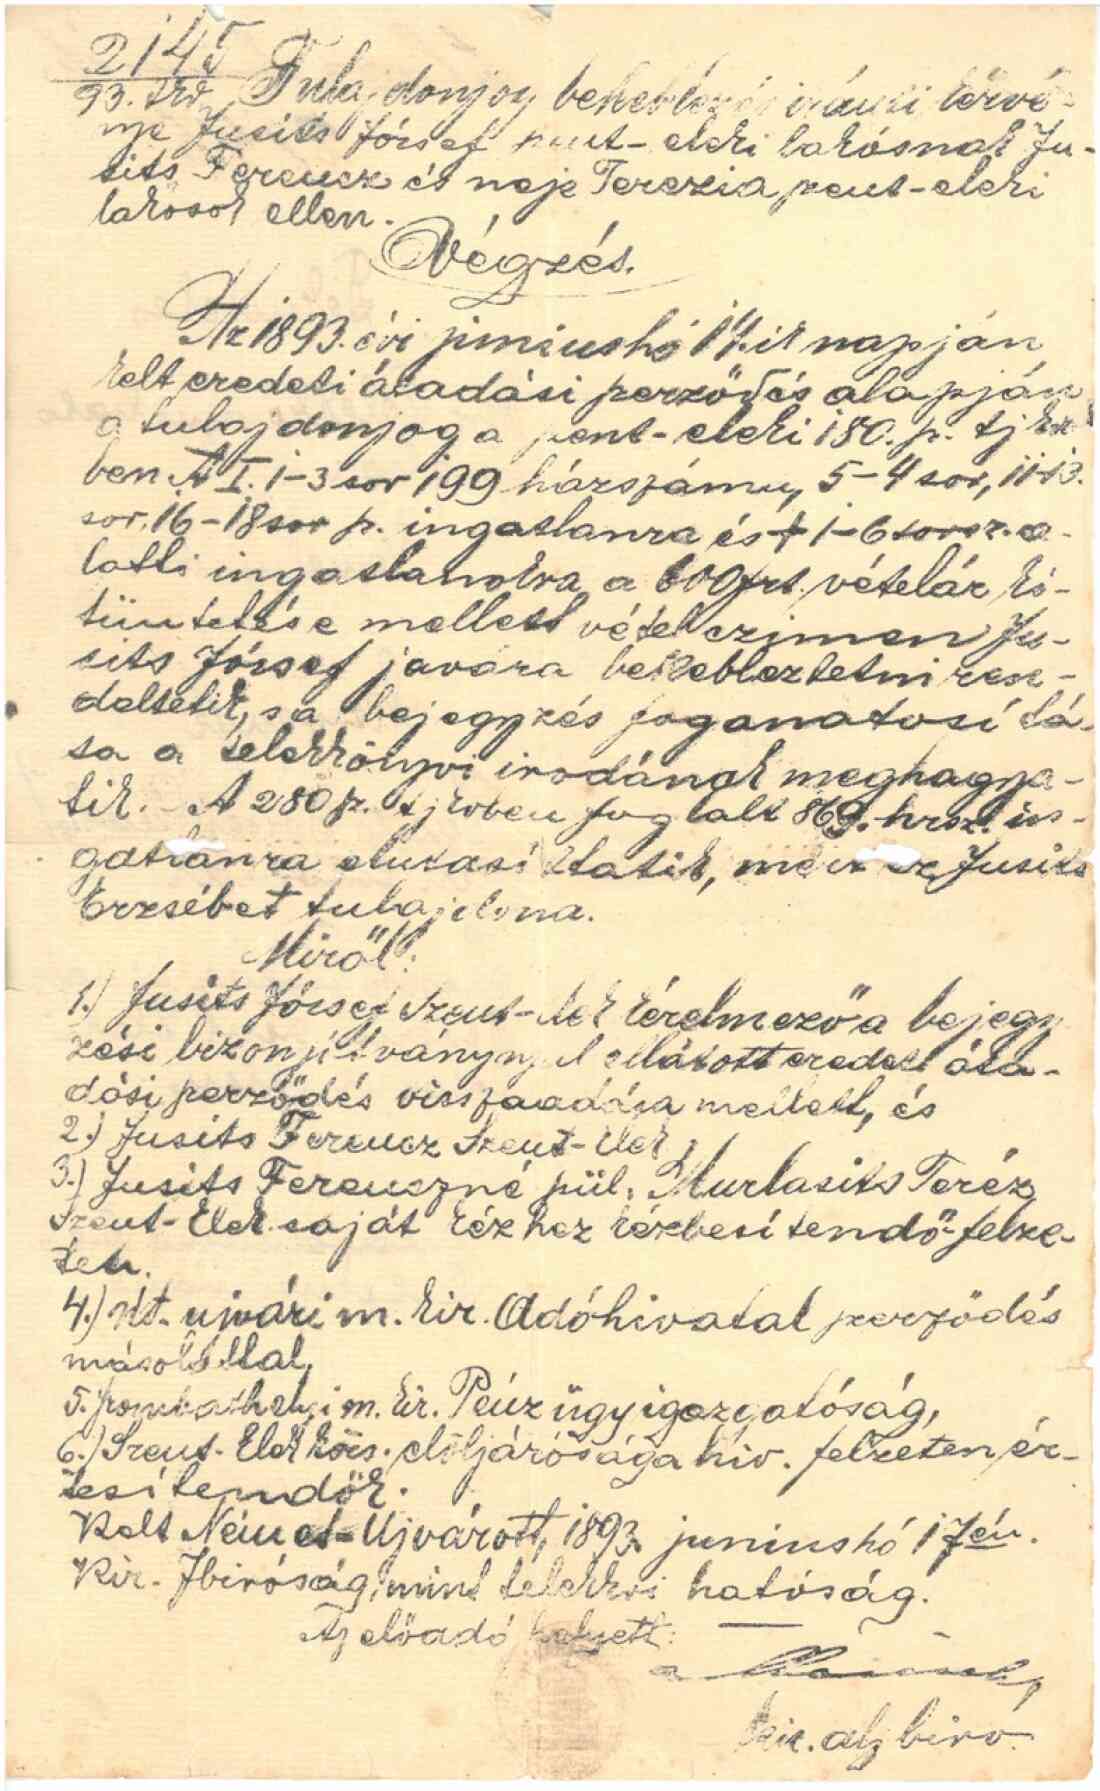 2145
93. tkv. Tulajdonjog bekeblezés iránti kérvé-
nye Jusits József szent-eleki lakósnak Ju-
sits Ferencz és neje Terézia szent-eleki
lakosok ellen.
Végzés.
Az 1893. évi juniushó 17.ik napján
kelt eredeti átadási szerződés alapján
a tulajdonjog a szent-eleki 180. sz. tjkv
ben A I. 1-3 sor 199 házszámu, 5-4 sor, 11-13.
sor, 16-18 sor sz. ingatlanra és † 1-6 sorsz. a-
latti ingatlanokra a 600 frt. vételár ki-
tüntetése mellett vétel czimen Ju-
sits József javára bekebleztetni ren-
deltetik, s a bejegyzés foganatosítá-
sa a telekkönyvi irodának meghagya-
tik. - A 280 sz. tjkvben foglalt 869. hrsz. in-
gatlanra elutasíttatik, mert ez Jusits
Erzsébet tulajdona.
Miről:
1.) Jusits József Szent-Elek kérelmező a bejegy
zési bizonyítványnyal ellátott eredeti áta-
dási szerződés visszaadása mellett, és
2.) Jusits Ferencz Szent-Elek
3.) Jusits Ferenczné szül. Murlasits Teréz
Szent-Elek saját kézhez kézbesítendő felze-
ten.
4.) Nt. ujvári m. kir. Adóhivatal szerződés
másolattal,
5. szombathelyi m. kir. Pénzügyigazgatóság,
6.) Szent-Elek közs. elöljárósága hiv. felzeten ér-
tesítendők.
Kelt Német-Ujvárott, 1893. juniushó 17én.
Kir. Jbiróság, mint telekkvi hatóság.
Az előadó helyett:
kir. alj biró.